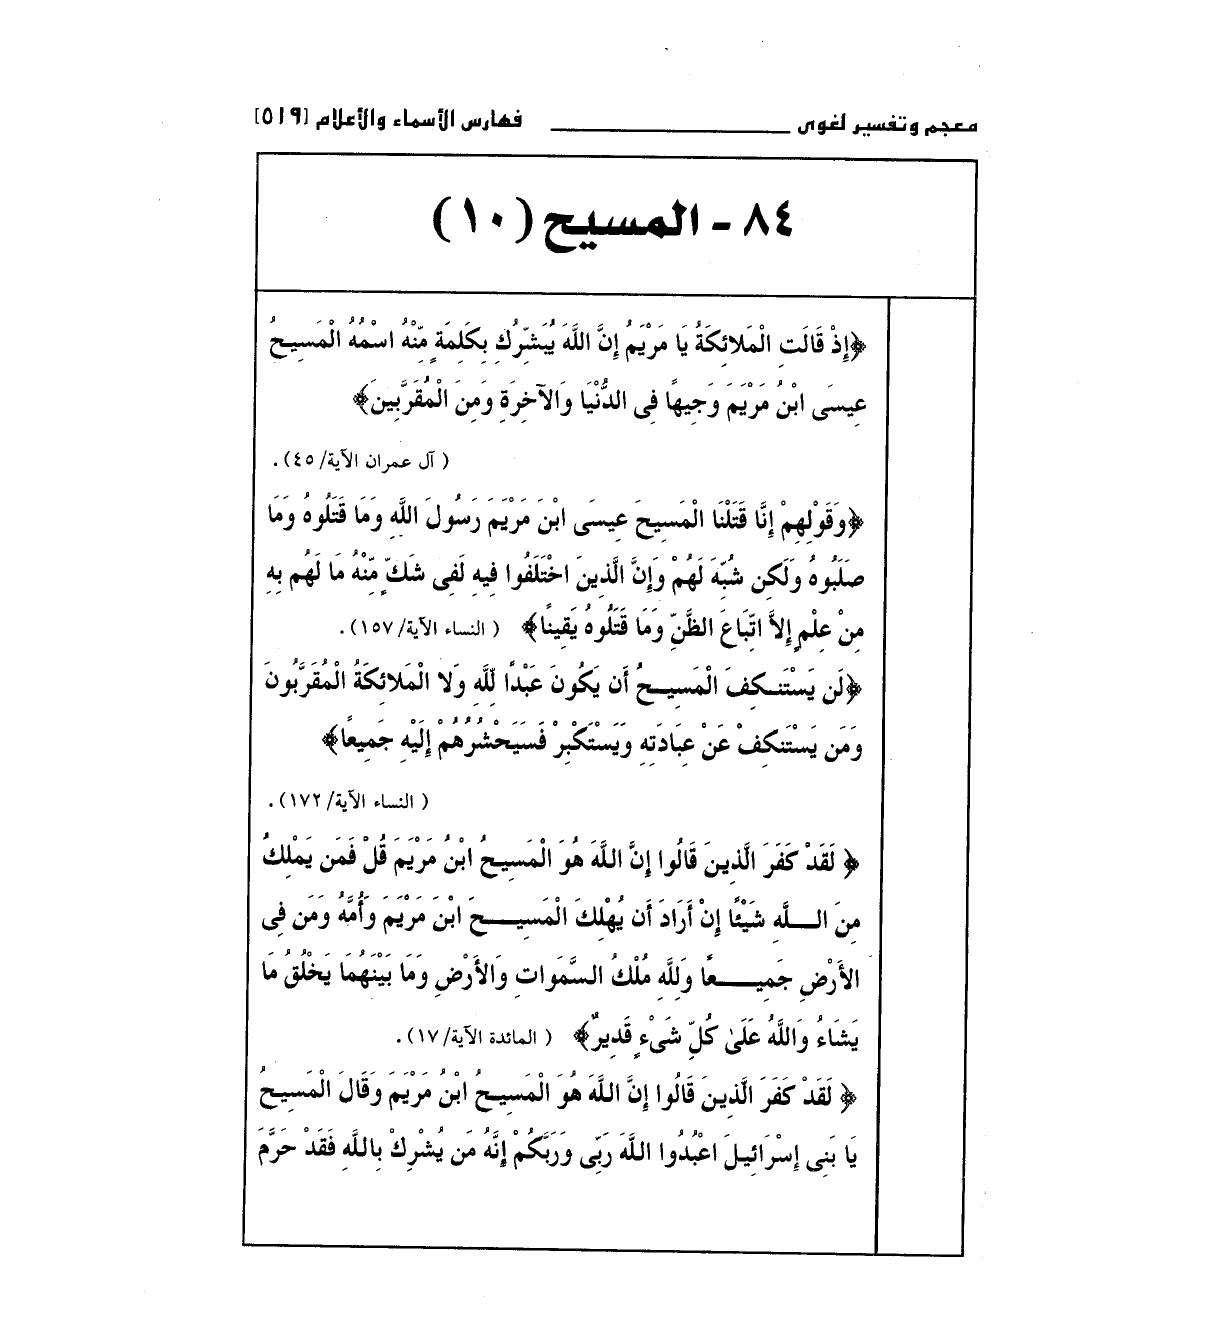 معجم وتفسير لغوى ــــــــــــــــ فهارس الأسماء والأعلام [٥١٩]
٨٤ - المسيح (١٠)
﴿إِذْ قَالَتِ الْمَلائِكَةُ يَا مَرْيَمُ إِنَّ اللَّهَ يُبَشِّرُكِ بِكَلِمَةٍ مِّنْهُ اسْمُهُ الْمَسِيحُ
عِيسَى ابْنُ مَرْيَمَ وَجِيهًا فِى الدُّنْيَا وَالآخِرَةِ وَمِنَ الْمُقَرَّبِينَ﴾
( آل عمران الآية/ ٤٥).
﴿وَقَوْلِهِمْ إِنَّا قَتَلْنَا الْمَسِيحَ عِيسَى ابْنَ مَرْيَمَ رَسُولَ اللَّهِ وَمَا قَتَلُوهُ وَمَا
صَلَبُوهُ وَلَكِن شُبِّهَ لَهُمْ وَإِنَّ الَّذِينَ اخْتَلَفُوا فِيهِ لَفِى شَكٍّ مِّنْهُ مَا لَهُم بِهِ
مِنْ عِلْمٍ إِلاَّ اتِّبَاعَ الظَّنِّ وَمَا قَتَلُوهُ يَقِينًا﴾ ( النساء الآية/ ١٥٧).
﴿لَن يَسْتَنـكِفَ الْمَسِيـــحُ أَن يَكُونَ عَبْدًا لِّلَّهِ وَلا الْمَلائِكَةُ الْمُقَرَّبُونَ
وَمَن يَسْتَنكِفْ عَنْ عِبَادَتِهِ وَيَسْتَكْبِرْ فَسَيَحْشُرُهُمْ إِلَيْهِ جَمِيعًا﴾
( النساء الآية/ ١٧٢).
﴿ لَقَدْ كَفَرَ الَّذِينَ قَالُوا إِنَّ اللَّهَ هُوَ الْمَسِيحُ ابْنُ مَرْيَمَ قُلْ فَمَن يَمْلِكُ
مِنَ الـــلَّهِ شَيْئًا إِنْ أَرَادَ أَن يُهْلِكَ الْمَسِيـــحَ ابْنَ مَرْيَمَ وَأُمَّهُ وَمَن فِى
الأَرْضِ جَمِيـــعًا وَلِلَّهِ مُلْكُ السَّمَوَاتِ وَالأَرْضِ وَمَا بَيْنَهُمَا يَخْلُقُ مَا
يَشَاءُ وَاللَّهُ عَلَىٰ كُلِّ شَىْءٍ قَدِيرٌ﴾ ( المائدة الآية/ ١٧).
﴿ لَقَدْ كَفَرَ الَّذِينَ قَالُوا إِنَّ اللَّهَ هُوَ الْمَسِيحُ ابْنُ مَرْيَمَ وَقَالَ الْمَسِيحُ
يَا بَنِى إِسْرَائِيلَ اعْبُدُوا اللَّهَ رَبِّى وَرَبَّكُمْ إِنَّهُ مَن يُشْرِكْ بِاللَّهِ فَقَدْ حَرَّمَ